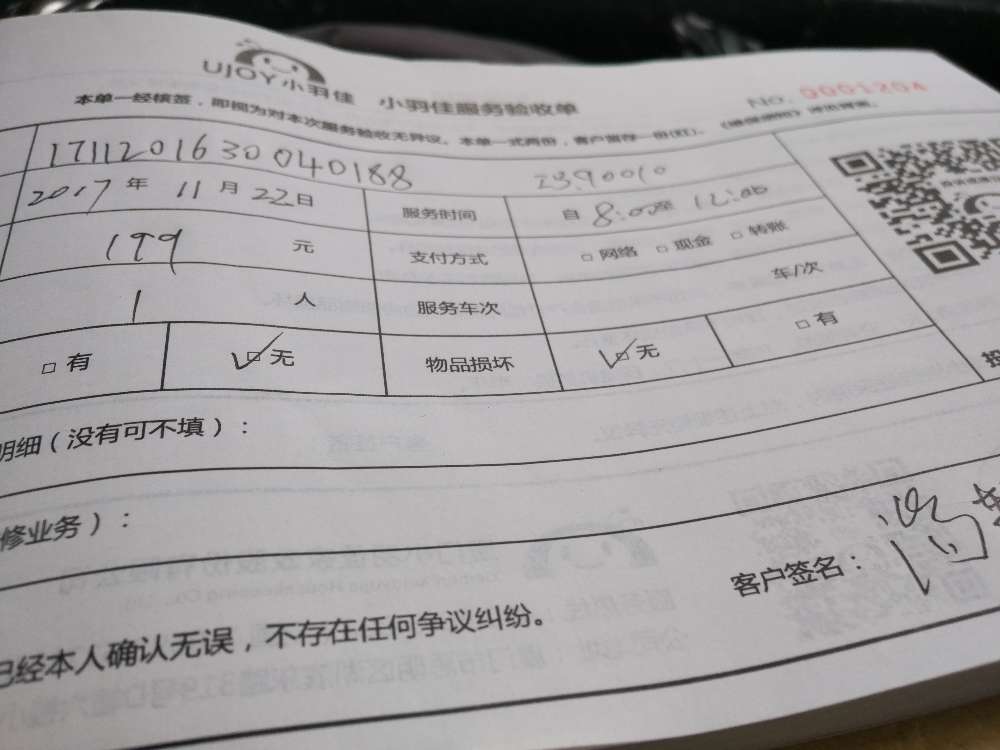 UJOY小羽佳 小羽佳服务验收单
NO. 0001204
本单一经核签，即视为对本次服务验收无异议。本单一式两份，客户留存一份(红)。
17112016300040188
2017年11月22日 服务时间 自8:00至12:00
199元 支付方式 □网络 □现金 □转账
1人 服务车次 车/次
□有 ☑无 物品损坏 ☑无 □有
明细（没有可不填）：
修业务）：
客户签名：
已经本人确认无误，不存在任何争议纠纷。